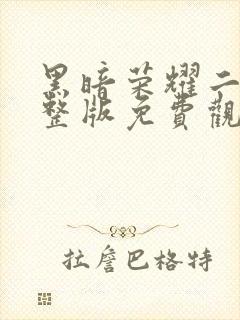 黑暗荣耀二
整版免費觀
拉詹巴格特